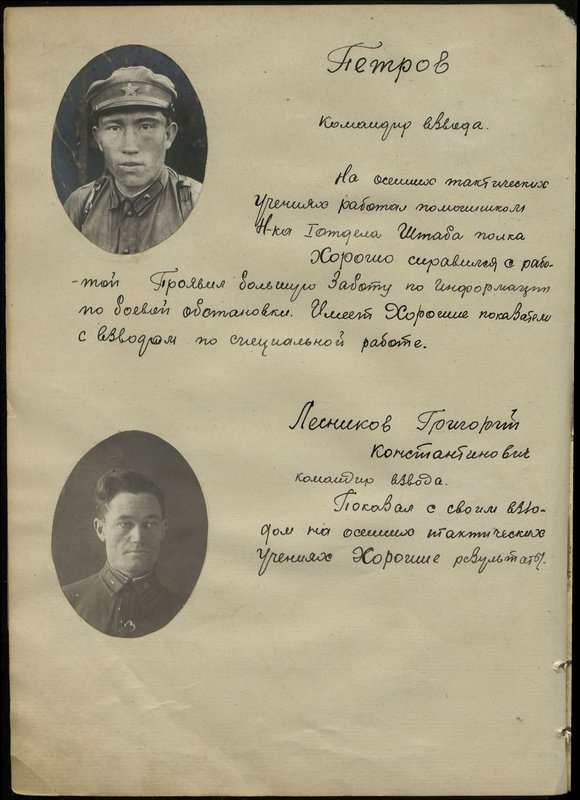 Петров
Командир взвода.
На осенних тактических
учениях работал помощником
Н-ка 1 отдела Штаба полка
Хорошо справился с рабо-
-той Проявил большую Заботу по информации
по боевой обстановки. Имеет Хорошие показатели
с взводом по специальной работе.
Лесников Григорий
Константинович
командир взвода.
Показал с своим взво-
дом на осенних тактических
учениях Хорошие результаты.